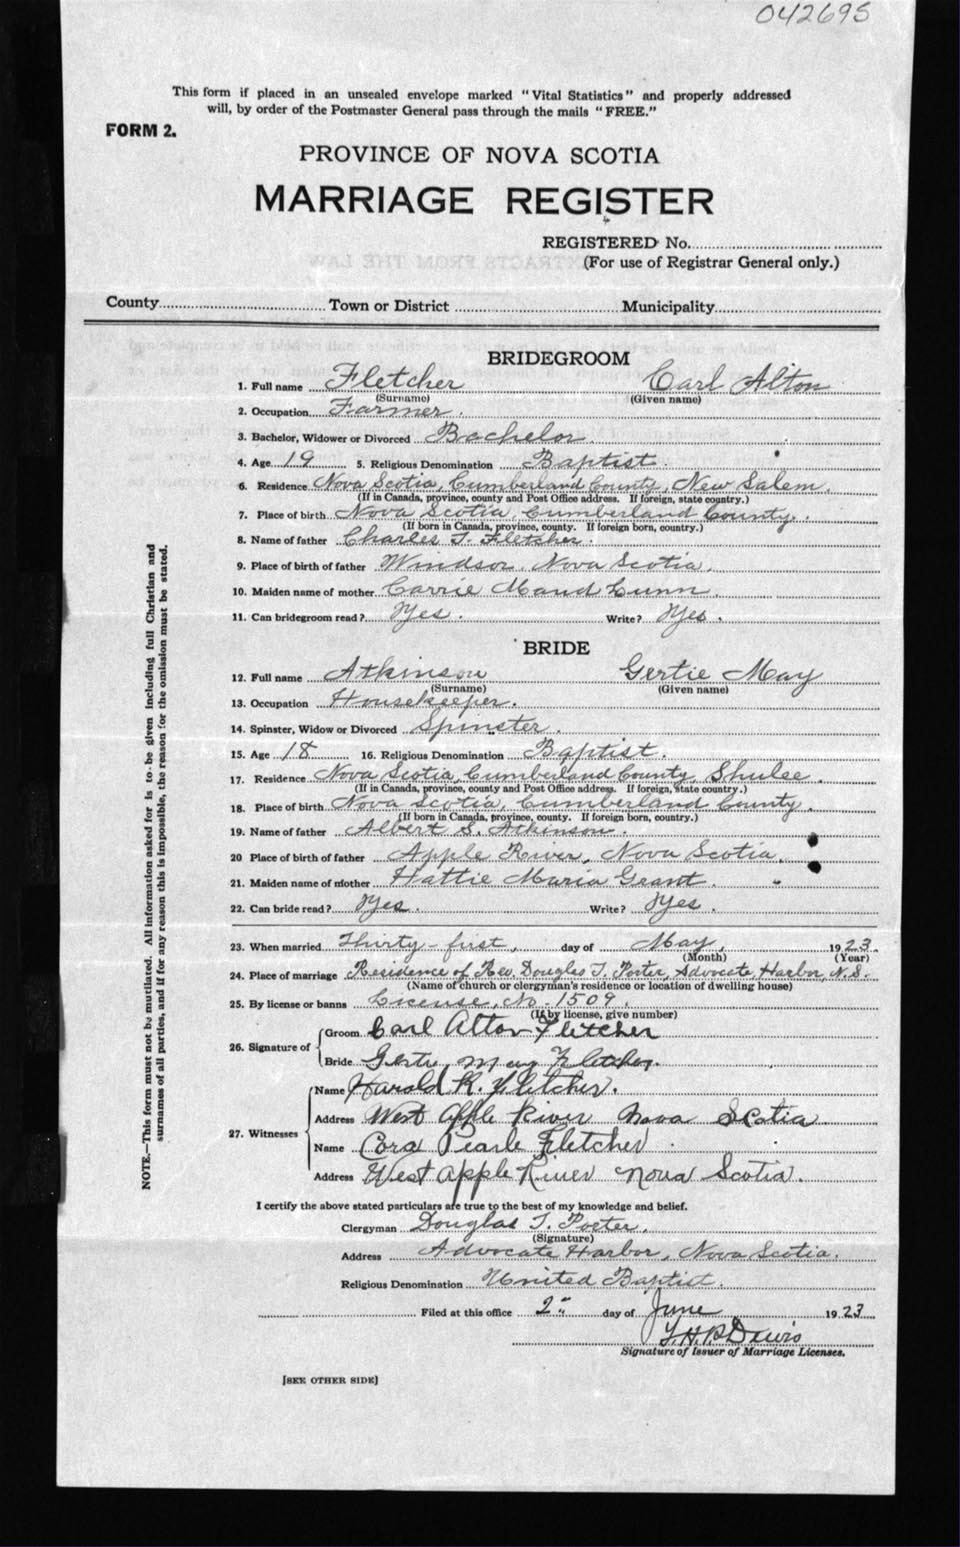 042695
This form if placed in an unsealed envelope marked "Vital Statistics" and properly addressed
will, by order of the Postmaster General pass through the mails "FREE."
FORM 2.
PROVINCE OF NOVA SCOTIA
MARRIAGE REGISTER
REGISTERED No.
(For use of Registrar General only.)
County Town or District Municipality
BRIDEGROOM
1. Full name Fletcher Carl Alton
(Surname) (Given name)
2. Occupation Farmer.
3. Bachelor, Widower or Divorced Bachelor.
4. Age 19 5. Religious Denomination Baptist.
6. Residence Nova Scotia, Cumberland County, New Salem.
(If in Canada, province, county and Post Office address. If foreign, state country.)
7. Place of birth Nova Scotia, Cumberland County.
(If born in Canada, province, county. If foreign born, country.)
8. Name of father Charles T. Fletcher.
9. Place of birth of father Windsor, Nova Scotia.
10. Maiden name of mother Carrie Maud Lunn.
11. Can bridegroom read? Yes. Write? Yes.
BRIDE
12. Full name Atkinson Gertie May
(Surname) (Given name)
13. Occupation Housekeeper.
14. Spinster, Widow or Divorced Spinster.
15. Age 18 16. Religious Denomination Baptist.
17. Residence Nova Scotia, Cumberland County, Shulee.
(If in Canada, province, county and Post Office address. If foreign, state country.)
18. Place of birth Nova Scotia, Cumberland County.
(If born in Canada, province, county. If foreign born, country.)
19. Name of father Albert S. Atkinson.
20 Place of birth of father Apple River, Nova Scotia.
21. Maiden name of mother Hattie Maria Grant.
22. Can bride read? Yes. Write? Yes.
23. When married Thirty-first, day of May, 1923.
(Month) (Year)
24. Place of marriage Residence of Rev. Douglas T. Porter, Advocate Harbor, N.S.
(Name of church or clergyman's residence or location of dwelling house)
25. By license or banns License, No. 1509.
(If by license, give number)
26. Signature of Groom Carl Alton Fletcher
Bride Gertie May Fletcher.
27. Witnesses Name Harold K. Fletcher.
Address West Apple River Nova Scotia
Name Cora Pearle Fletcher
Address West Apple River Nova Scotia.
I certify the above stated particulars are true to the best of my knowledge and belief.
Clergyman Douglas T. Porter.
(Signature)
Address Advocate Harbor, Nova Scotia.
Religious Denomination United Baptist.
Filed at this office 2" day of June 1923
Davis
Signature of Issuer of Marriage Licenses.
[SEE OTHER SIDE]
NOTE.—This form must not be mutilated. All information asked for is to be given including full Christian and
surnames of all parties, and if for any reason this is impossible, the reason for the omission must be stated.